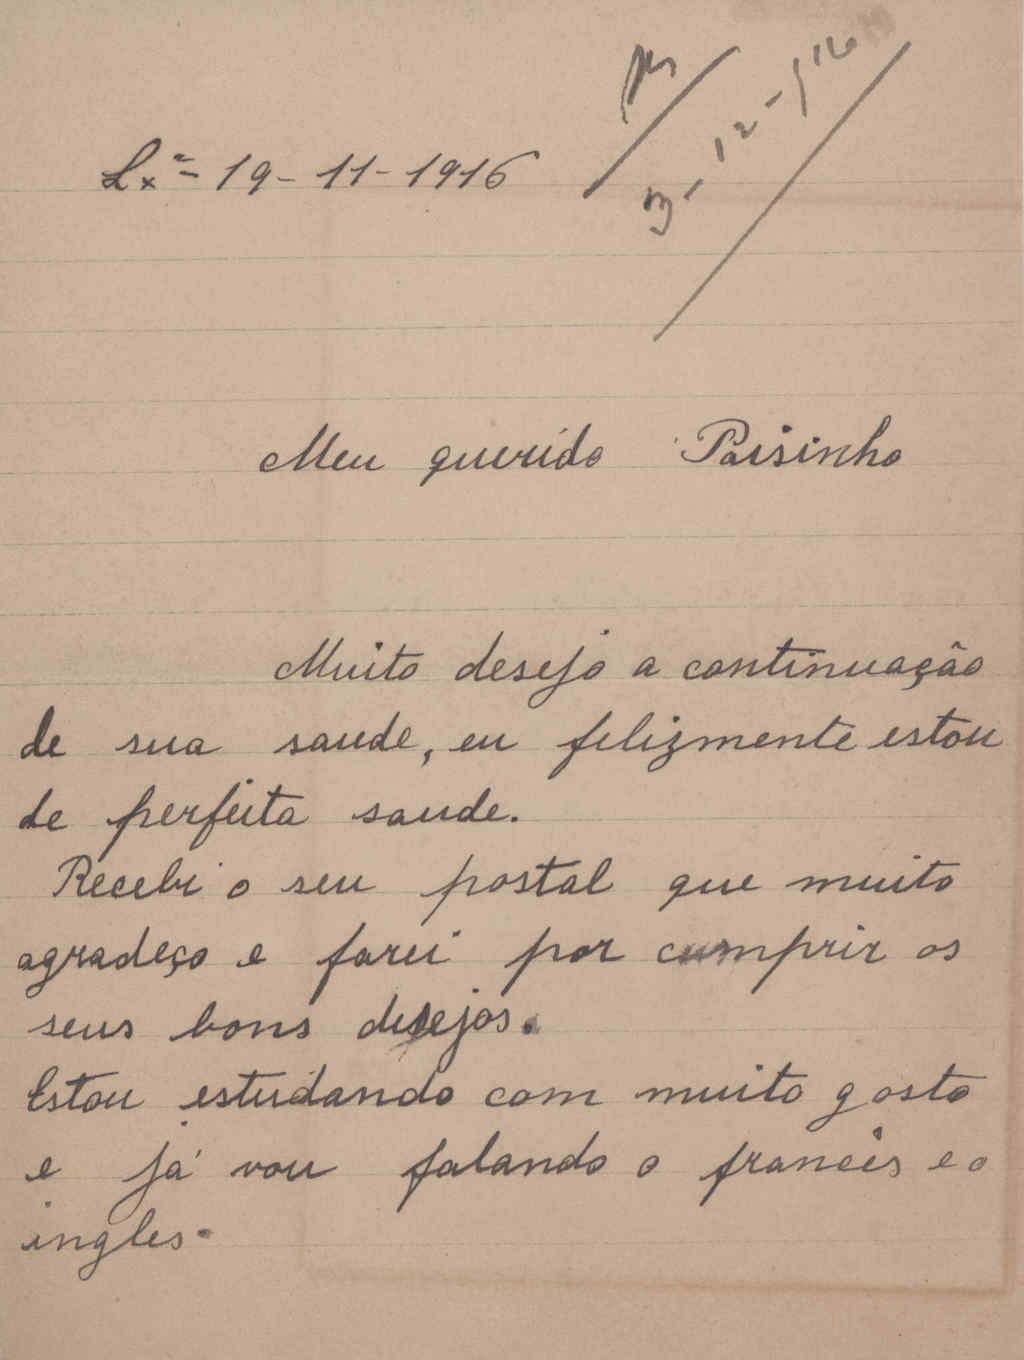 Lxª - 19 - 11 - 1916
3 - 12 - 916
Meu querido Paisinho
Muito desejo a continuação
de sua saude, eu felizmente estou
de perfeita saude.
Recebi o seu postal que muito
agradeço e farei por cumprir os
seus bons desejos.
Estou estudando com muito gosto
e já vou falando o francês e o
ingles.